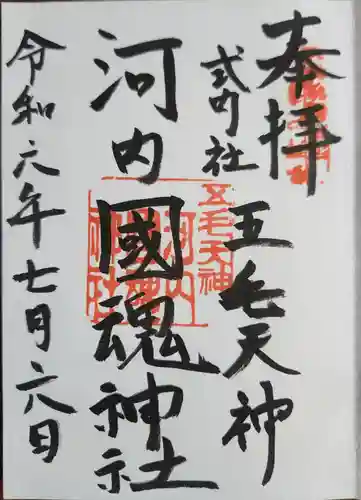 奉拝
式内社
五毛天神
河内國魂神社
令和六年七月六日
五毛天神